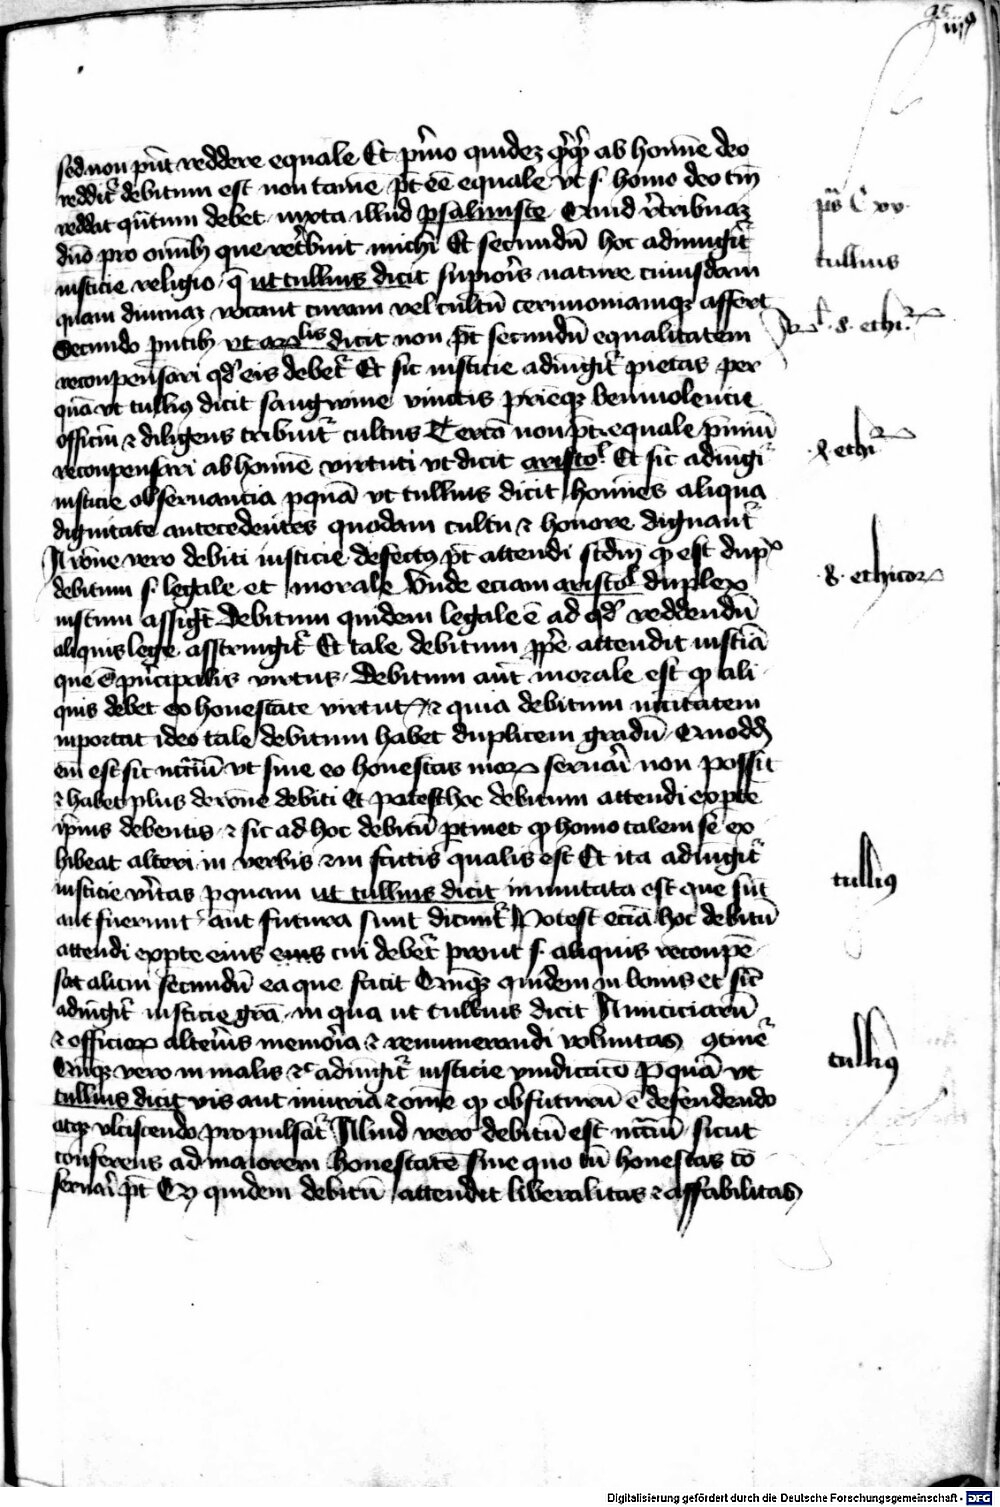 95
iiij
sed non pñt reddere equale Et pͥmo quidez qͥcqͥd ab hoĩne deo
redditʳ debitum est non tamē pt eē equale vt s. homo deo tm̃
reddat qñtum debet iuxta illud psalmiste Quid rͤtribuaz
dño pro omĩbꝫ que retͥbuit michi Et secundū hoc adiungitʳ
iusticie religio q̄ ut tullius dicit supioris nature cuiusdam
quam diuinaz vocant curam vel cultū cerimoniamqꝫ affert
Secundo pntibꝫ vt arꝛlis dicit non pt secundū equalitatem
reconpensari qđ eis debetʳ Et sic iusticie adiungitʳ pietas per
quā vt tullius dicit sangwine iunctis prieqꝫ beniuolencie
officiū ⁊ diligens tribuitʳ cultus Tercō non pt equale pͥmiū
reconpensari ab hoĩne virtuti vt dicit aristoˡ. Et sic adiungiʳ
iusticie obseruancia p quā vt tullius dicit homines aliqua
dignitate antecedentes quodam cultu ⁊ honore dignantʳ
A rōne vero debiti iusticie defectus pt attendi scđm qꝫ est dupˣ
debitum s. legale et morale Unde eciam aristoˡ duplex
iustum assigt̃ Debitum quidem legale ē ad qđ reddendū
aliquis lege asstringitʳ Et tale debitum ppͥe attendit iustiã
que ē pͥncipalis virtus Debitum aũt morale est qꝫ ali
quis debet ex honestate virtutꝭ ⁊ quia debitum nccitatem
inportat ideo tale debitum habet duplicem gradū Quodđ
em est sic nccͥiū vt sine eo honestas moꝝ seruari non possit
⁊ habet plus de rone debiti Et potest hoc debitum attendi ex pte
ip̃ius debentis ⁊ sic ad hoc debitū ptinet qꝫ homo talem se ex
hibeat alteri in verbis ⁊ in factis qualis est Et ita adiungitʳ
iusticie vͥitas p quam ut tullius dicit inmutata est que sūt
aut fuerunt aut futura sunt dicuntʳ Potest eciā hoc debitū
attendi ex pte eius eius cui debetʳ prout s. aliquis reconpē
sat alicui secundū ea que fecit Qñqꝫ quidem in bonis et sic
adiungitʳ iusticie grã in qua ut tullius dicit Amiciciarū
⁊ officioꝝ alterius memoria ⁊ remunerandi voluntas ꝯtinetʳ
Qñqꝫ vero in malis ⁊ c̃ adiungitʳ iusticie vindicacō p quā vt
tullius dicit vis aut iniuria ⁊ oīne qꝫ obfuturū ē defendendo
atqꝫ vlciscendo propulsatʳ Aliud vero debitū est nccͥiū sicut
conferens ad maiorem honestatē sine quo tñ honestas cō
seruari pt Qđ quidem debitū attendit liberalitas ⁊ affabilitas
ps Cxv.
tullius
arˡ. 8. ethiꝝ
4 ethiꝝ
8. ethicoꝝ
tullius
tullius
Digitalisierung gefördert durch die Deutsche Forschungsgemeinschaft - DFG